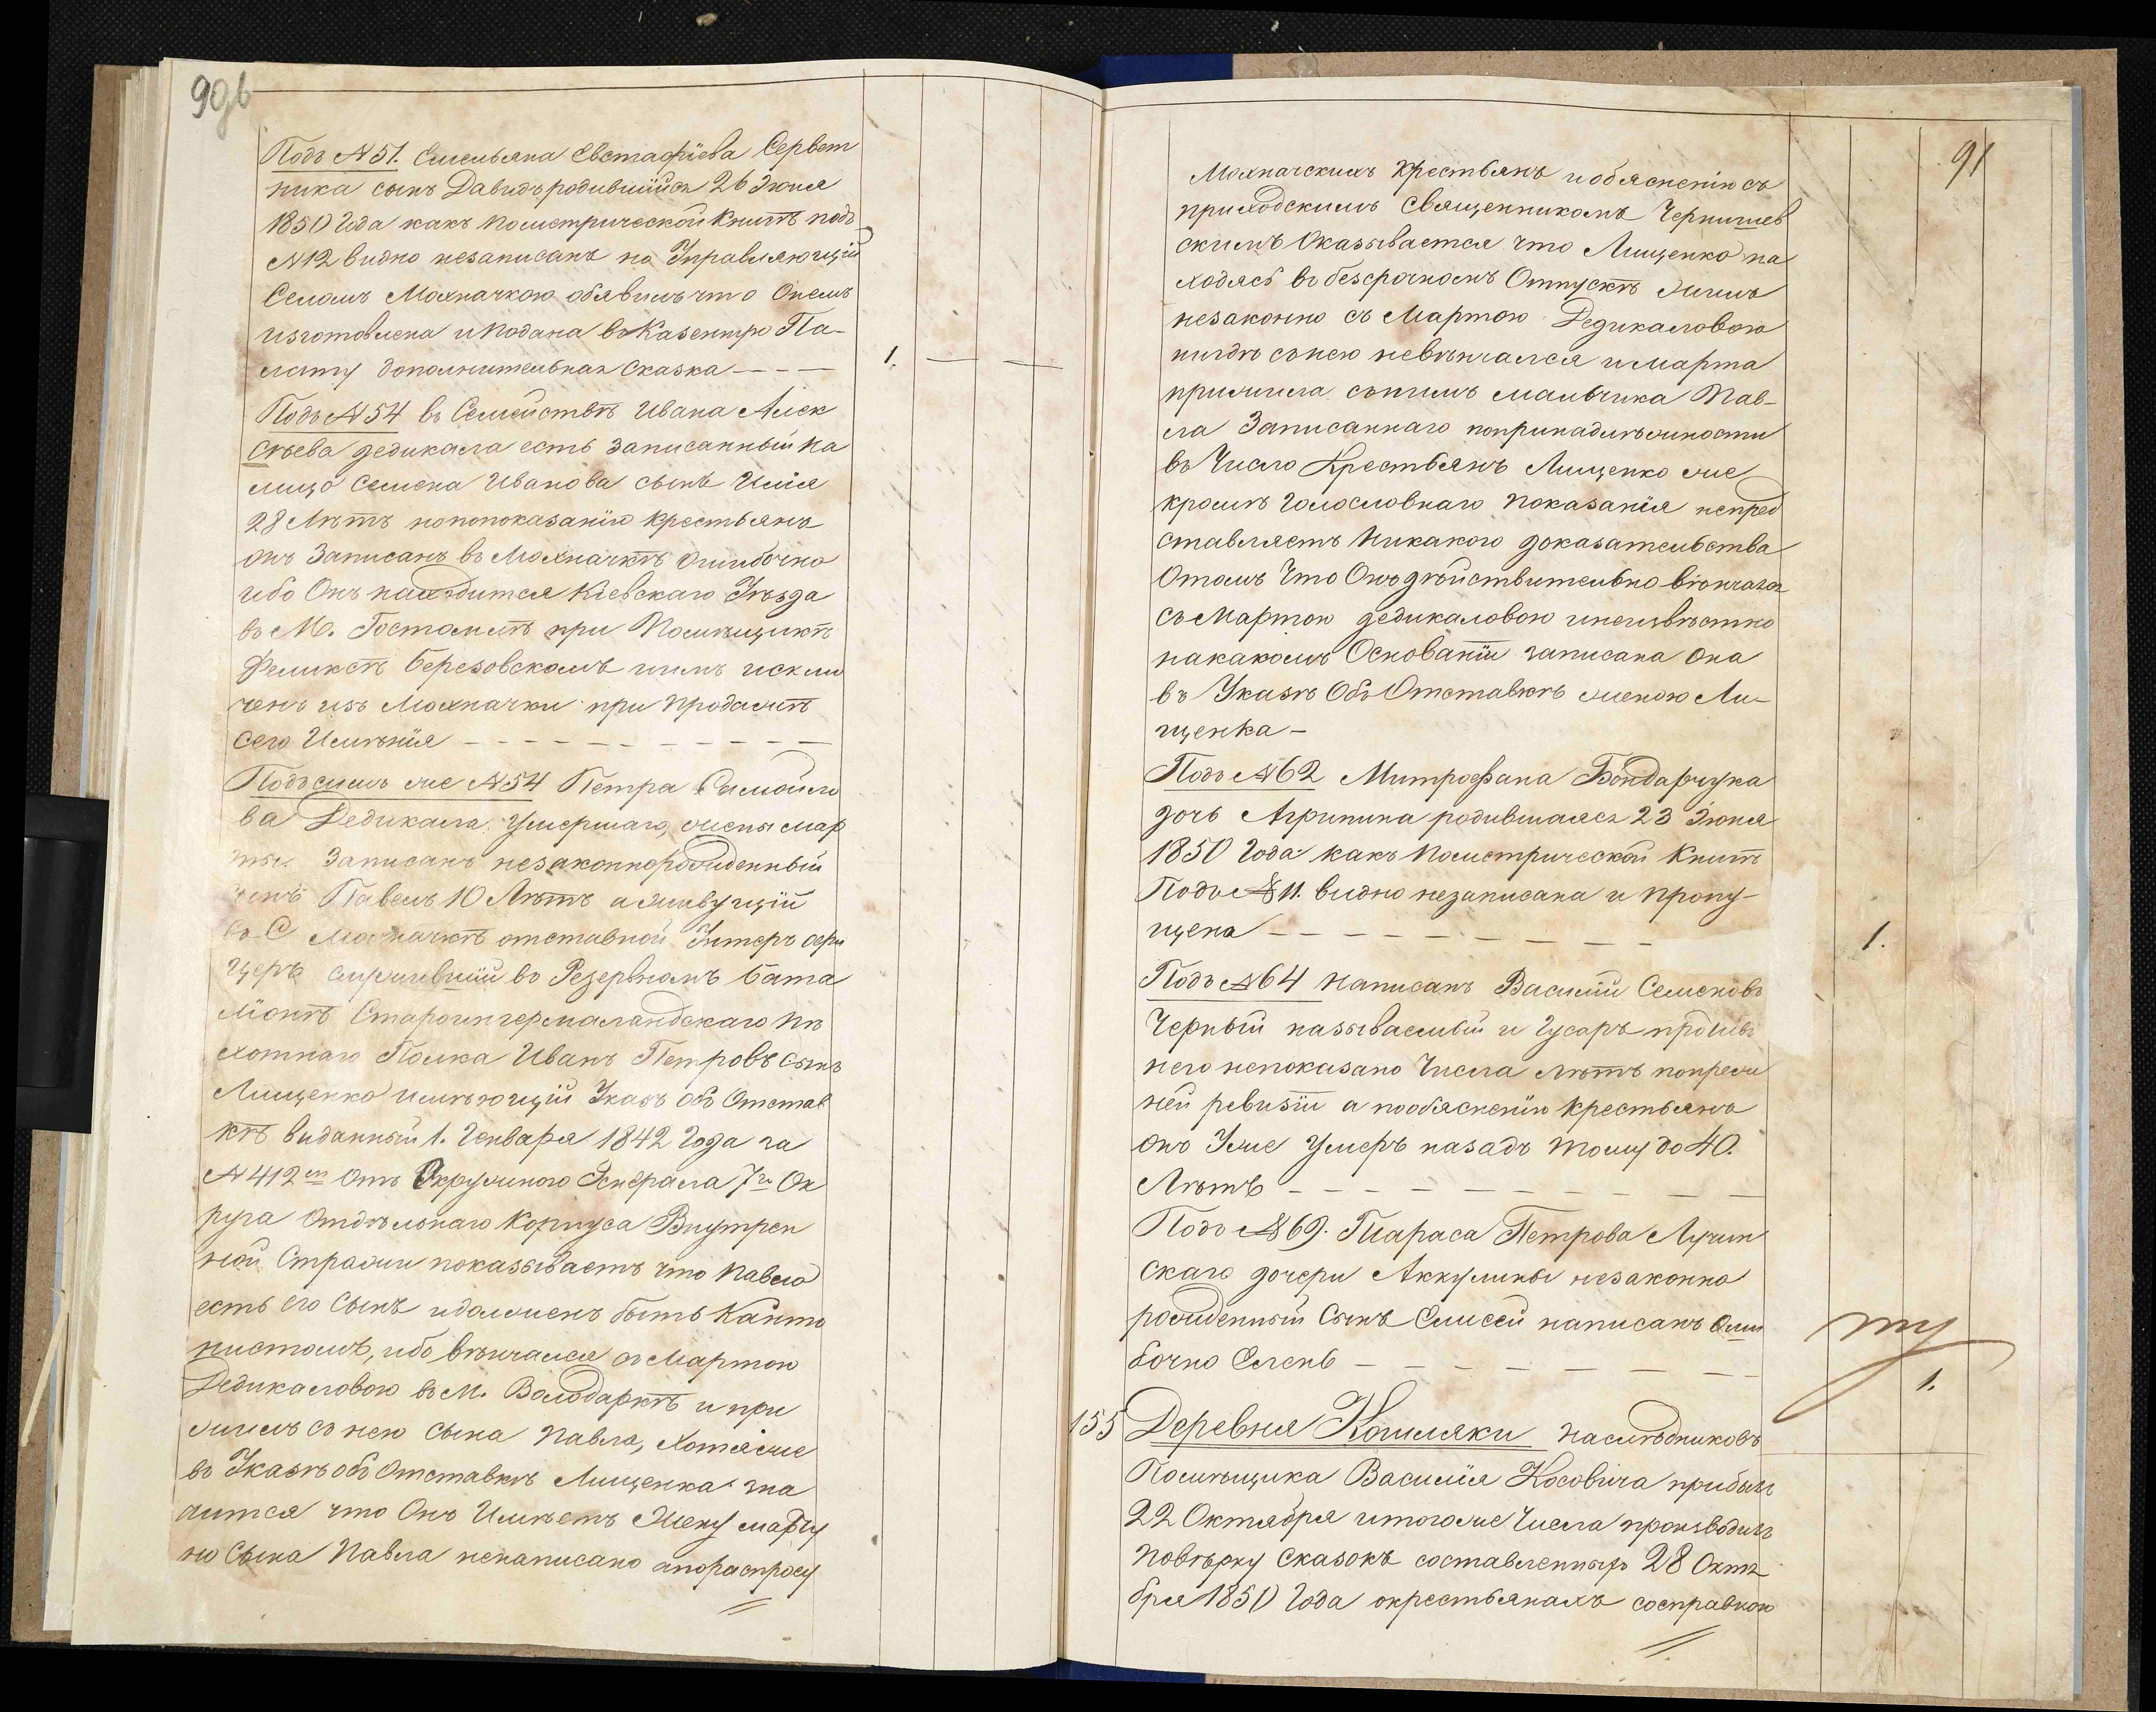 90б
Подъ №51. Емельяна Евстафіева Сервет
ника сынъ Давидъ родившійся 26 Іюня
1850 Года какъ пометрической Книгѣ подъ
№12 видно незаписанъ но Управляющій
Селомъ Махначкою обявилъ что Онемъ
изготовлена и подана въ Казенную Па-
лату дополнительная Сказка - - - -
1.
Подъ №54 въ Семействѣ Ивана Алек
сѣева дедикала есть Записанный на
лицо Семена Иванова сынъ Илія
28 Лѣтъ нопопоказанію Крестьянъ
онъ Записанъ въ Махначкѣ Ошибочно
ибо Онъ находится Кіевскаго Уѣзда
въ М. Гостомлѣ при Помѣщикѣ
Феликсѣ Березовскомъ имъ исклю
ченъ изъ Махначки при Продажѣ
сего Имѣнія - - - - - - - - - - -
Подъ симъ же №54 Петра Самойло
ва Дедикала Умершаго, жены Мар
ты Записанъ незаконнорожденный
сынъ Павелъ 10 Лѣтъ а живущій
въ С Махначкѣ отставной Унтеръ офи
церъ служившій въ Резервномъ бата
ліонѣ Староингермаландскаго Пѣ
хотнаго Полка Иванъ Петровъ Сынъ
Лищенко имѣющій Указъ Объ Отстав
кѣ виданный 1. Генваря 1842 Года за
№412м Отъ Окружного Генерала 7го Ок
руга Отдѣльнаго Корпуса Внутрен
ной Стражи показываетъ что Павело
есть его Сынъ идолженъ быть Канто
нистомъ, ибо вѣнчался съ Мартою
Дедикаловою въ М. Володаркѣ и при
жилъ съ нею Сына Павла, Хотя же
въ Указѣ объ Отставкѣ Лищенка зна
чится что Онъ Имѣетъ Жену марту
но Сына Павла ненаписано апораспросу
91
Махначскихъ Крестьянъ и обясненію съ
приходскимъ Священникомъ Чернишев
скимъ Оказывается что Лищенко на
ходясь въ безсрочномъ Отпускѣ жилъ
незаконно съ Мартою Дедикаловою
нигдѣ сънею невѣнчался и марта
прижила снимъ мальчика Пав-
ла Записаннаго попринадлѣжности
въ Число Крестьянъ Лищенко же
кромѣ Голословнаго Показанія непред
ставляетъ Никакого доказательства
Отомъ Что Онъ дѣйствительно вѣнчался
съ Мартою дедикаловою инеизвѣстно
накакомъ Основаніи записана Она
въ Указѣ Объ Отставкѣ женою Ли-
щенка -
Подъ №62 Митрофана Бондарчука
дочь Агрипина родившаяся 23 Іюня
1850 Года какъ пометрической Книгѣ
Подъ №11. видно незаписана и пропу-
щена - - - - - - - - -
1.
Подъ №64 Написанъ Василій Семеновъ
Черный называемый и Гусаръ противъ
него непоказано Числа лѣтъ попреж
ней ревизіи а пообясненію Крестьянъ
онъ Уже Умеръ назадъ тому до 40.
Лѣтъ - - - - - - - - -
Подъ №69. Тараса Петрова Лучин
скаго дочери Аккулины незаконно
рожденный Сынъ Елисей написанъ Оши
бочно Елень - - - - - - -
1.
155 Деревня Кошляки наслѣдниковъ
Помѣщика Василія Косовича прибылъ
22 Октября итогоже Числа производилъ
Повѣрку Сказокъ составленныхъ 28 Октя
бря 1850 Года окрестьянахъ сосправкою